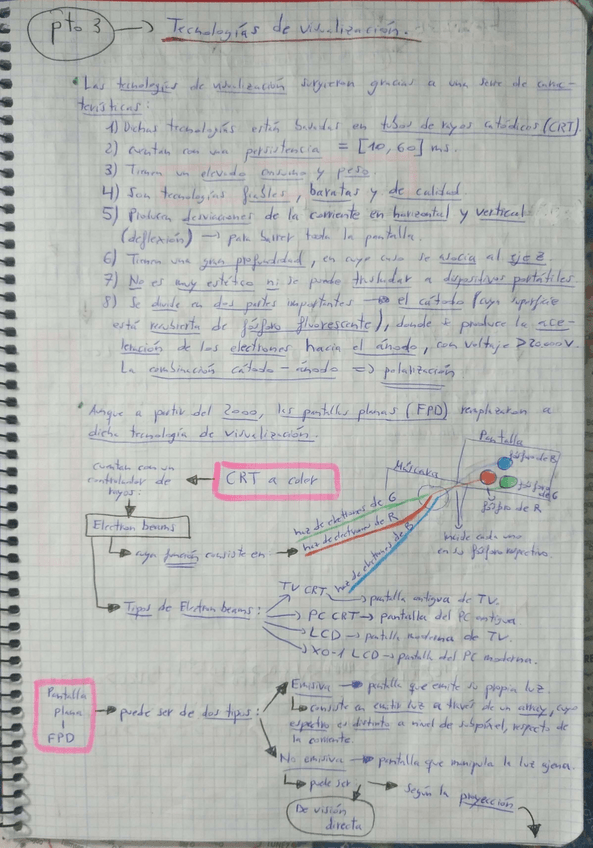 pto 3 → Tecnologías de visualización.
• Las tecnologías de visualización surgieron gracias a una serie de carac-
terísticas:
1) Dichas tecnologías están basadas en tubos de rayos catódicos (CRT).
2) Cuentan con una persistencia = [10, 60] ms.
3) Tienen un elevado consumo y peso.
4) Son tecnologías fiables, baratas y de calidad.
5) Producen desviaciones de la corriente en horizontal y vertical
(deflexión) → para barrer toda la pantalla.
6) Tienen una gran profundidad, en cuyo caso se asocia al eje z.
7) No es muy estético ni se puede trasladar a dispositivos portátiles.
8) Se divide en dos partes importantes → el cátodo (cuya superficie
está recubierta de fósforo fluorescente), donde se produce la ace-
leración de los electrones hacia el ánodo, con voltaje > 20.000 V.
La combinación cátodo - ánodo => polarización
• Aunque a partir del 2000, las pantallas planas (FPD) remplazaron a
dicha tecnología de visualización.
CRT a color
cuentan con un
controlador de
rayos:
Electron beams
cuya función consiste en:
haz de electrones de G
haz de electrones de R
haz de electrones de B
Máscara
Pantalla
fósforo de B
fósforo de G
fósforo de R
incide cada uno
en su fósforo respectivo.
Tipos de Electron beams:
TV CRT → pantalla antigua de TV.
PC CRT → pantalla del PC antigua
LCD → pantalla moderna de TV.
XO-1 LCD → pantalla del PC moderna.
Pantalla
plana
FPD
puede ser de dos tipos:
Emisiva → pantalla que emite su propia luz.
consiste en emitir luz a través de un array, cuyo
espectro es distinto a nivel de subpíxel, respecto de
la corriente.
No emisiva → pantalla que manipula la luz ajena.
puede ser:
según la proyección
De visión
directa